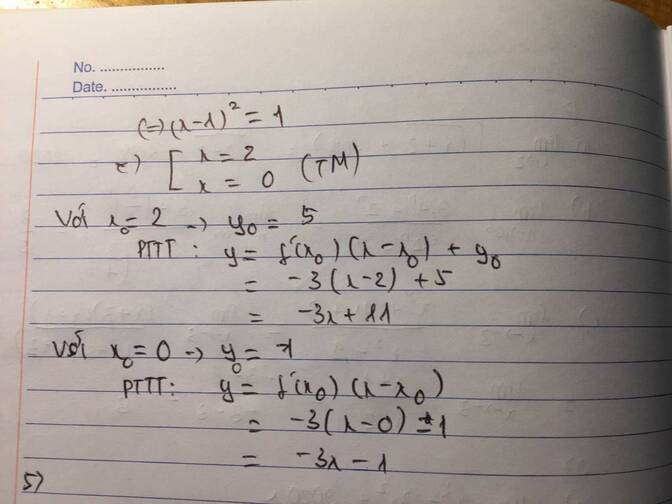 No. ................
Date. ................
(=) (x-1)² = 1
=) [ x = 2
x = 0 (TM)
Với x₀ = 2 -> y₀ = 5
PTTT : y = f'(x₀)(x-x₀) + y₀
= -3(x-2) + 5
= -3x + 11
Với x₀ = 0 -> y₀ = -1
PTTT: y = f'(x₀)(x-x₀)
= -3(x-0) - 1
= -3x - 1
5)